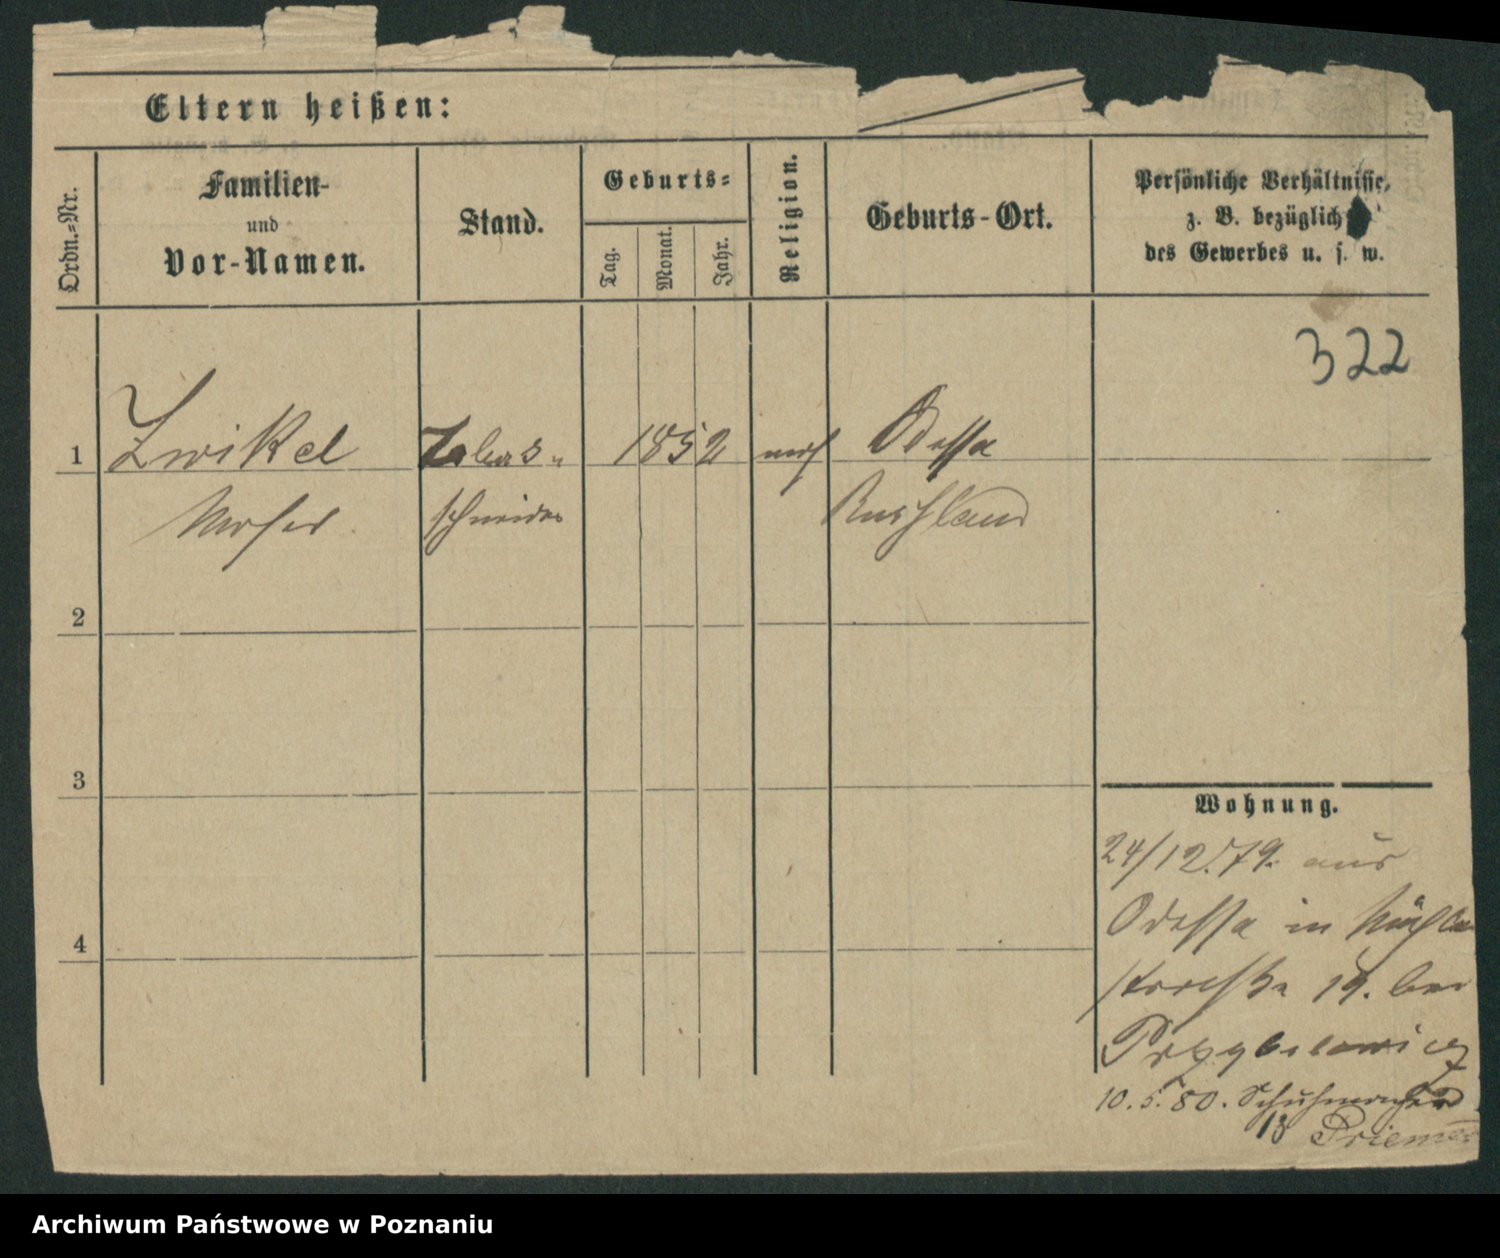 Eltern heißen:
Ordn.-Nr.
Familien-
und
Vor-Namen.
Stand.
Geburts-
Tag.
Monat.
Jahr.
Religion.
Geburts-Ort.
Persönliche Verhältnisse,
z. B. bezüglich
des Gewerbes u. s. w.
322
1 Zwikel 1852 mos Odessa
Moses schneider Russland
2
3
4
Wohnung.
24/12.79. aus
Odessa in
straße 19. bei
10.5.80.
13
Archiwum Państwowe w Poznaniu